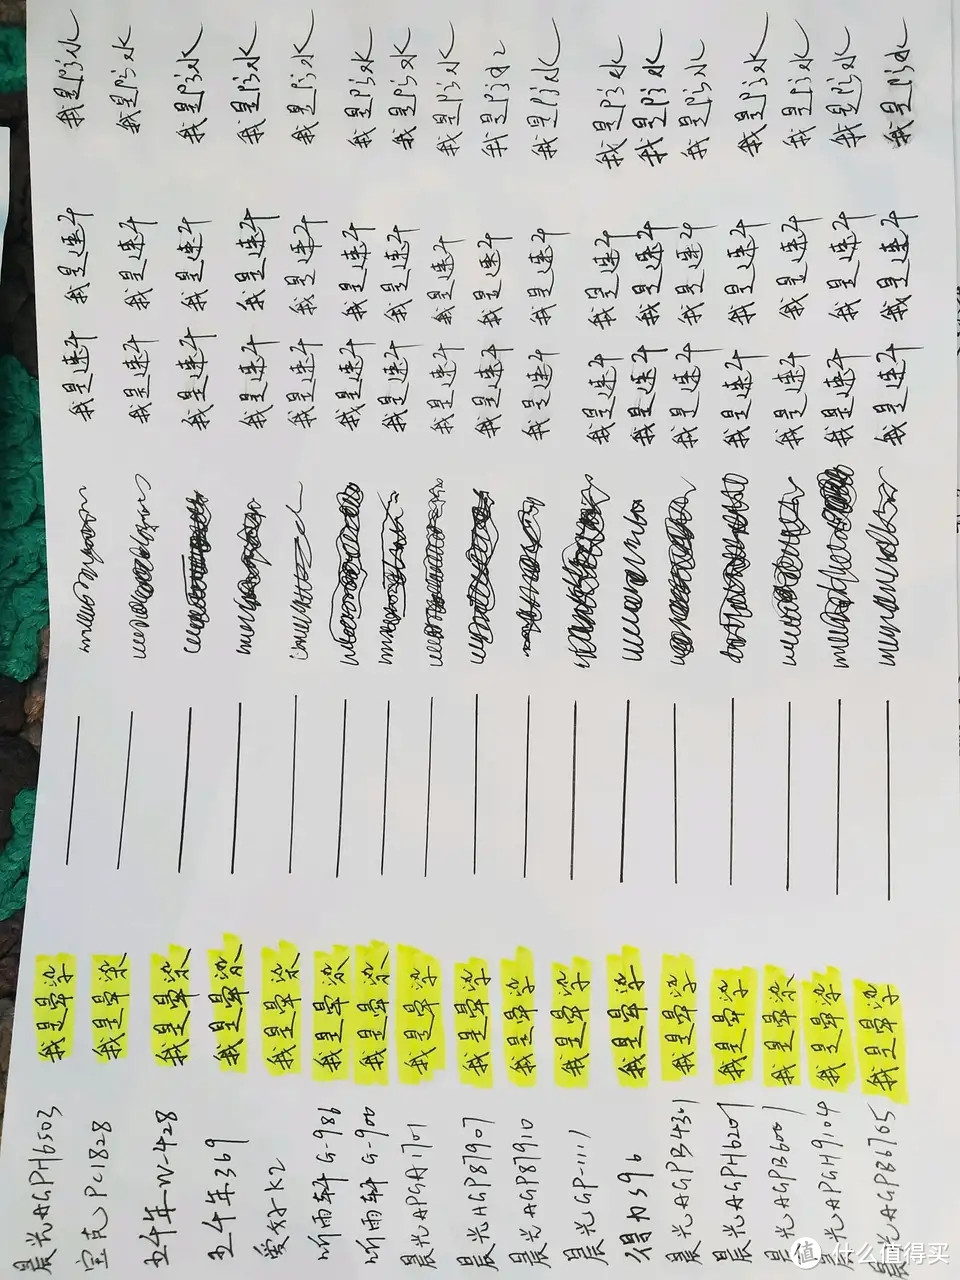 晨光AGPH6503 我是晕染 我是速干 我是速干 我是防水
宝克PC1828 我是晕染 我是速干 我是速干 我是防水
五千年W-428 我是晕染 我是速干 我是速干 我是防水
五千年369 我是晕染 我是速干 我是速干 我是防水
爱好K2 我是晕染 我是速干 我是速干 我是防水
听雨轩G-986 我是晕染 我是速干 我是速干 我是防水
听雨轩G-900 我是晕染 我是速干 我是速干 我是防水
晨光APGA1701 我是晕染 我是速干 我是速干 我是防水
晨光AGP87907 我是晕染 我是速干 我是速干 我是防水
晨光AGP87910 我是晕染 我是速干 我是速干 我是防水
晨光GP-1111 我是晕染 我是速干 我是速干 我是防水
得力S96 我是晕染 我是速干 我是速干 我是防水
晨光AGPB4301 我是晕染 我是速干 我是速干 我是防水
晨光AGPH6207 我是晕染 我是速干 我是速干 我是防水
晨光AGPB6001 我是晕染 我是速干 我是速干 我是防水
晨光APGH9104 我是晕染 我是速干 我是速干 我是防水
晨光AGPB6765 我是晕染 我是速干 我是速干 我是防水
值 什么值得买